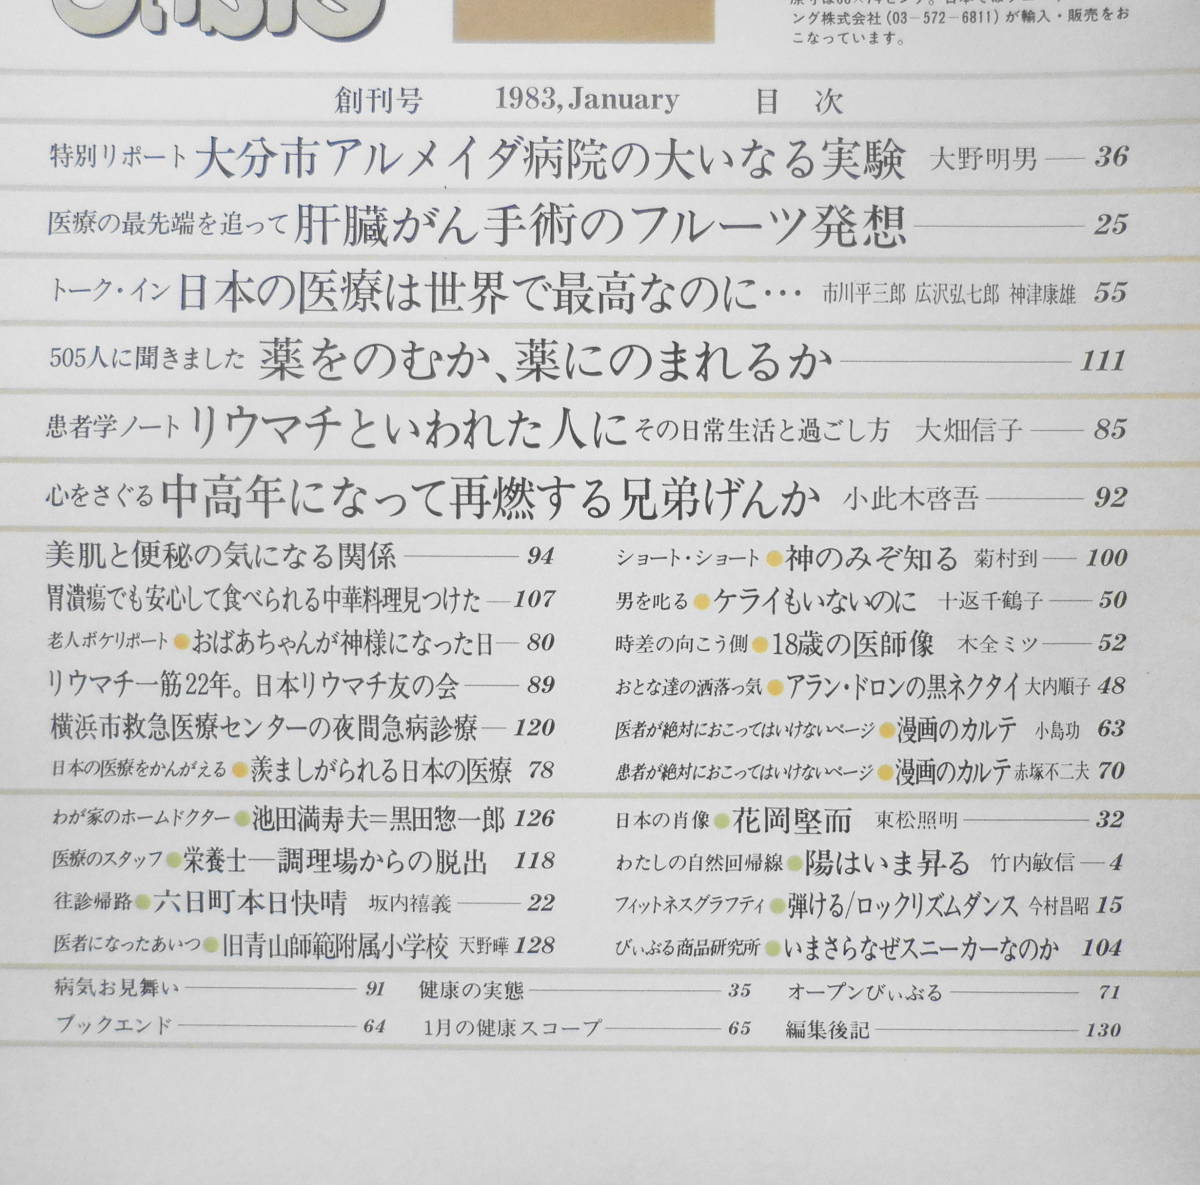 ング株式会社(03-572-6811)が輸入・販売をお
こなっています。
創刊号 1983, January 目 次
特別リポート 大分市アルメイダ病院の大いなる実験 大野明男 36
医療の最先端を追って 肝臓がん手術のフルーツ発想 25
トーク・イン 日本の医療は世界で最高なのに… 市川平三郎 広沢弘七郎 神津康雄 55
505人に聞きました 薬をのむか、薬にのまれるか 111
患者学ノート リウマチといわれた人に その日常生活と過ごし方 大畑信子 85
心をさぐる 中高年になって再燃する兄弟げんか 小此木啓吾 92
美肌と便秘の気になる関係 94
胃潰瘍でも安心して食べられる中華料理見つけた 107
老人ボケリポート●おばあちゃんが神様になった日 80
リウマチ一筋22年。日本リウマチ友の会 89
横浜市救急医療センターの夜間急病診療 120
日本の医療をかんがえる●羨ましがられる日本の医療 78
ショート・ショート●神のみぞ知る 菊村到 100
男を叱る●ケライもいないのに 十返千鶴子 50
時差の向こう側●18歳の医師像 木全ミツ 52
おとな達の洒落っ気●アラン・ドロンの黒ネクタイ 大内順子 48
医者が絶対におこってはいけないページ●漫画のカルテ 小島功 63
患者が絶対におこってはいけないページ●漫画のカルテ 赤塚不二夫 70
わが家のホームドクター●池田満寿夫=黒田惣一郎 126
医療のスタッフ●栄養士—調理場からの脱出 118
往診帰路●六日町本日快晴 坂内禧義 22
医者になったあいつ●旧青山師範附属小学校 天野曄 128
日本の肖像●花岡堅而 東松照明 32
わたしの自然回帰線●陽はいま昇る 竹内敏信 4
フィットネスグラフティ●弾ける/ロックリズムダンス 今村昌昭 15
びぃぶる商品研究所●いまさらなぜスニーカーなのか 104
病気お見舞い 91
健康の実態 35
オープンびぃぶる 71
ブックエンド 64
1月の健康スコープ 65
編集後記 130